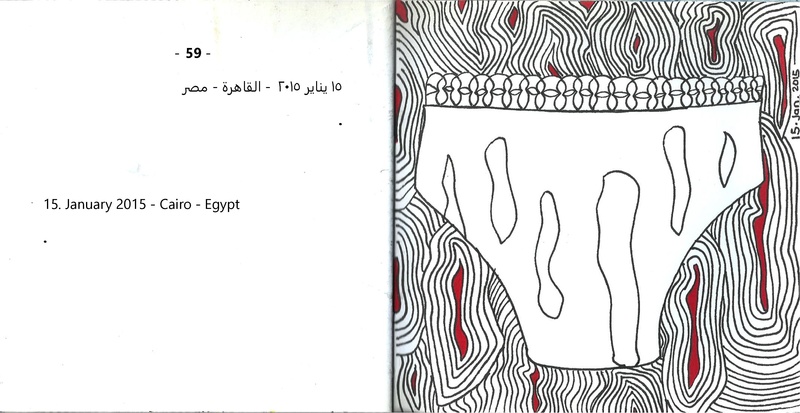 - 59 -
١٥ يناير ٢٠١٥ - القاهرة - مصر
.
15. January 2015 - Cairo - Egypt
.
15. Jan. 2015